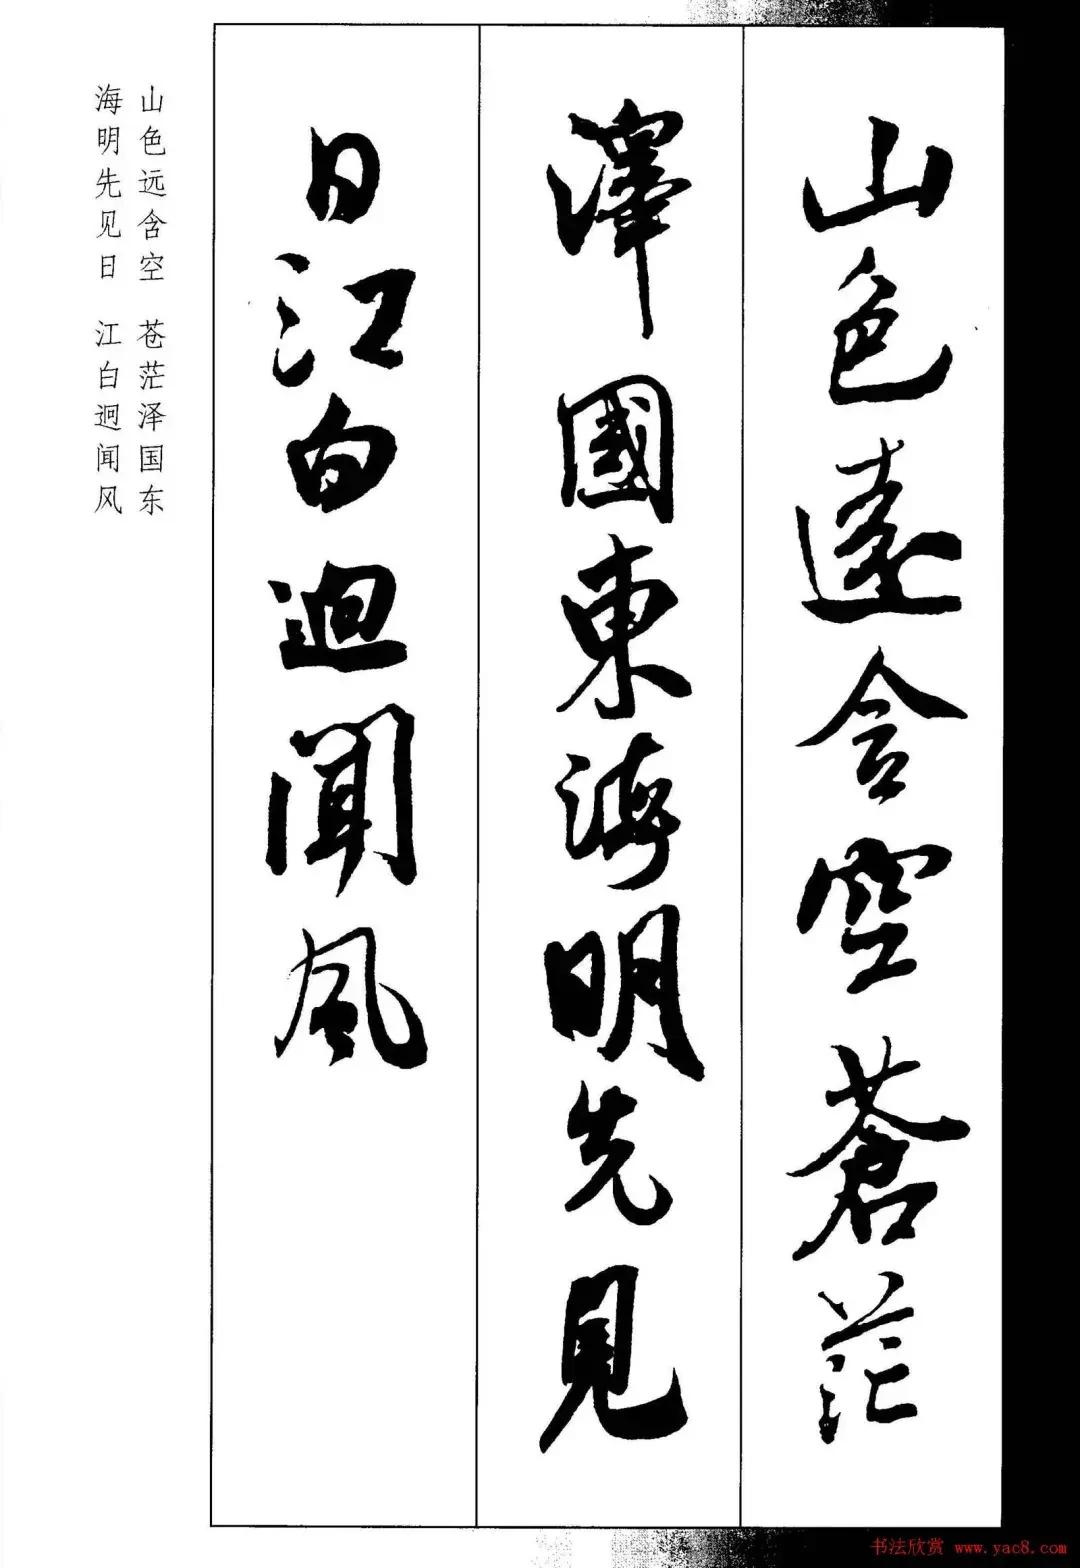 山色遠含空蒼茫
澤國東海明先見
日江白迥聞風
山色远含空 苍茫泽国东
海明先见日 江白迥闻风
书法欣赏 www.yac8.com